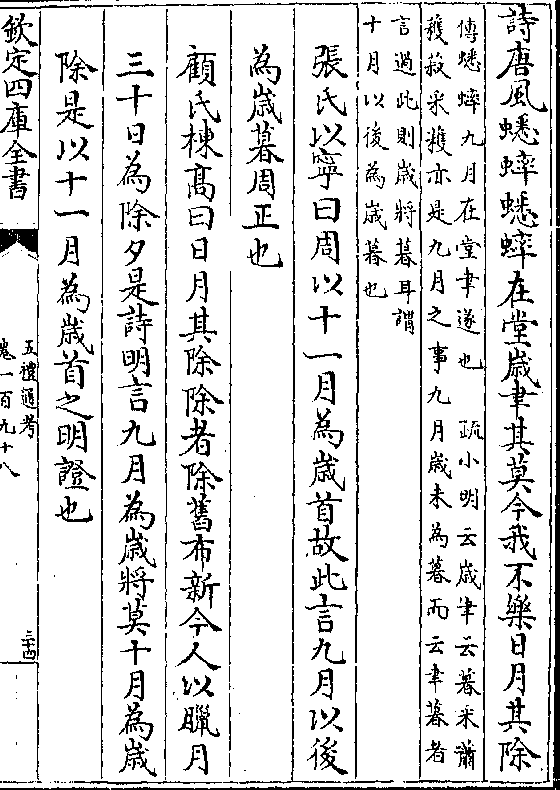 詩唐風蟋蟀蟋蟀在堂歲聿其莫今我不樂日月其除
傳蟋蟀九月在堂聿遂也 疏小明云歲聿云暮采蕭
穫菽采穫亦是九月之事九月歲未為暮而云聿暮者
言過此則歲將暮耳謂
十月以後為歲暮也
張氏以寧曰周以十一月為歲首故此言九月以後
為歲暮周正也
顧氏棟高曰日月其除除者除舊布新今人以臘月
三十日為除夕是詩明言九月為歲將莫十月為歲
除是以十一月為歲首之明證也
欽定四庫全書
五禮通考
卷一百九十八
三十四